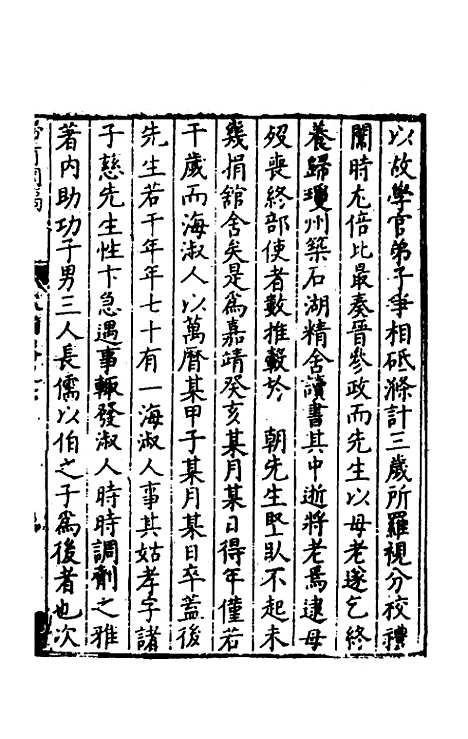 以故學官弟子爭相砥滌計三歲所羅視分校禮
闈時尢倍比最奏晉參政而先生以母老遂乞終
養歸瓊州築石湖精舍讀書其中逝將老焉逮母
歿喪終部使者數推轂於　朝先生堅臥不起未
幾捐館舍矣是爲嘉靖癸亥某月某日得年僅若
干歲而海淑人以萬曆某甲子某月某日卒蓋後
先生若干年年七十有一海淑人事其姑孝字諸
子慈先生性卞急遇事輒發淑人時時調劑之雅
著內助功子男三人長儒以伯之子爲後者也次